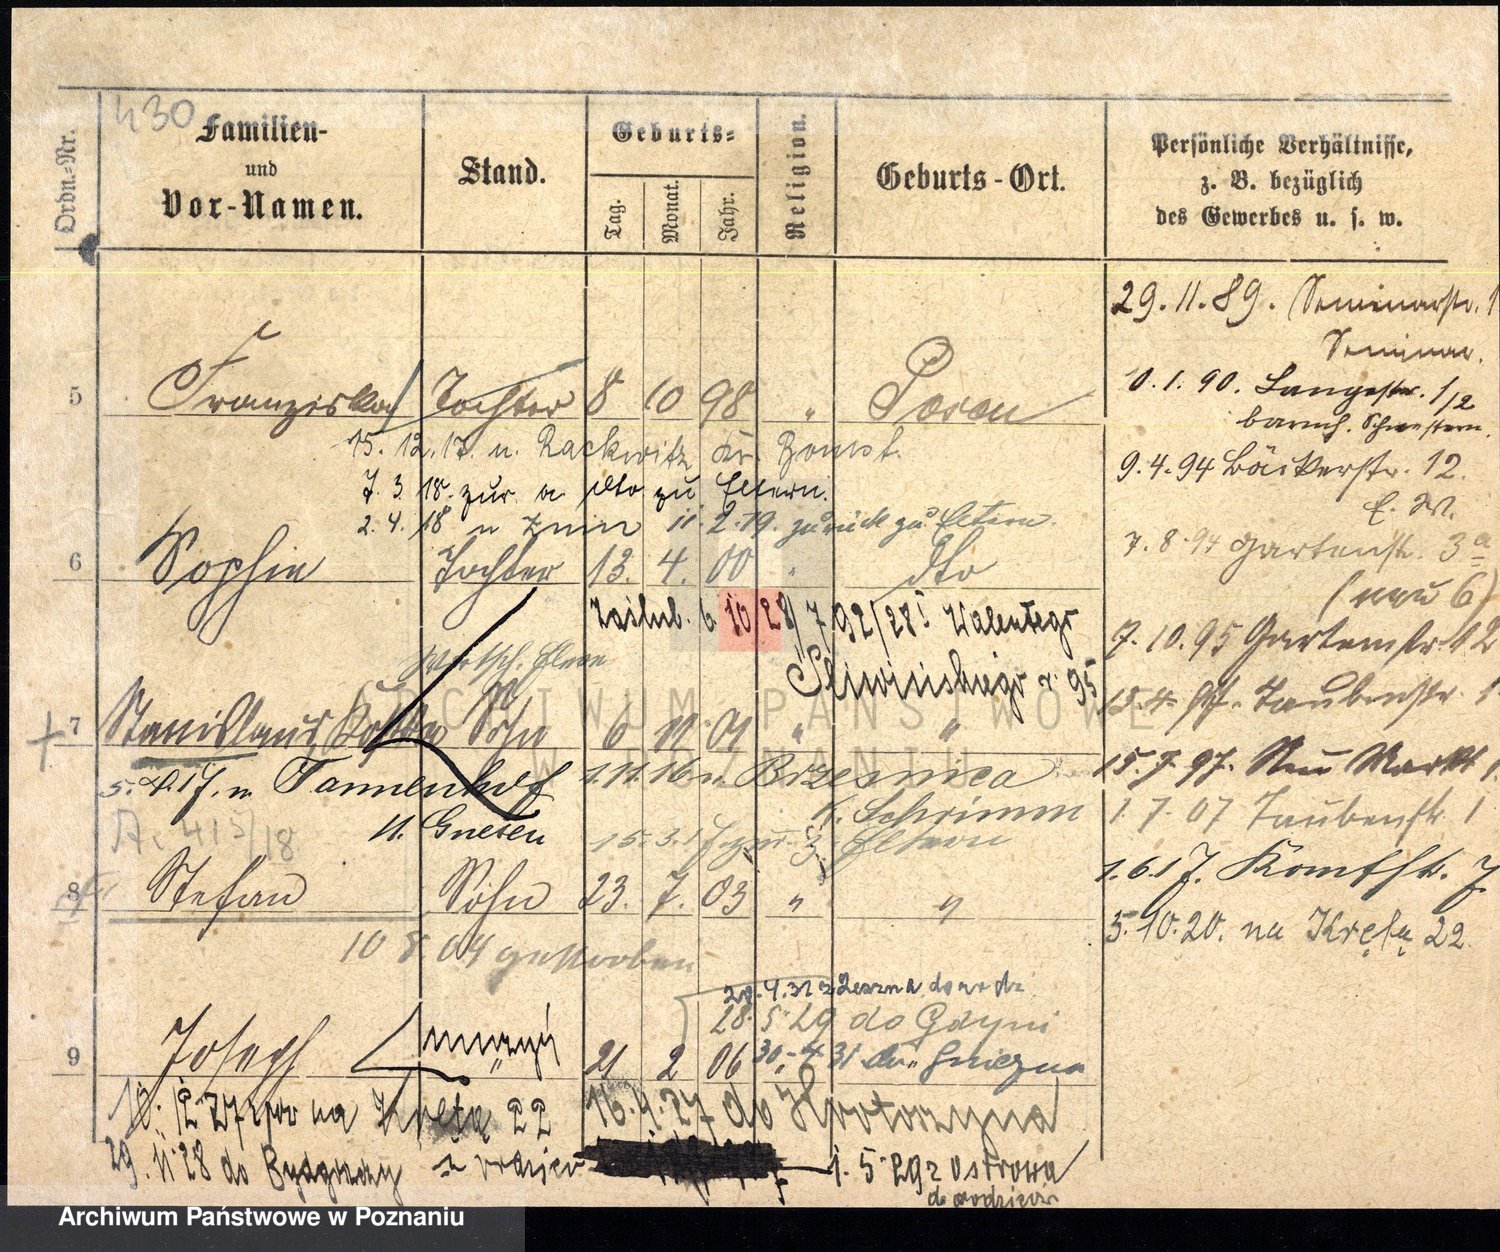 430
Ordn.-Nr.
Familien-
und
Vor-Namen.
Stand.
Geburts-
Tag.
Monat.
Jahr.
Religion.
Geburts-Ort.
Persönliche Verhältnisse,
z. B. bezüglich
des Gewerbes u. s. w.
29. 11. 89. Seminarstr. 1
Seminar.
5 Franziska Tochter 8 10 98 " Posen
15. 12. 17. n. Rackwitz Kr. Bomst.
7. 3. 18. zur. a dto zu Eltern.
2. 4. 18 n Znin 11. 2. 19. zurück zu Eltern.
6 Sophie Tochter 13. 4. 00 " dto
Zaślub. 6 10 28 / 792/28 Walentego
Śliwińskiego r. 95
Wirtsch. Eleve
7 Stanislaus Kostka Sohn 6 11 01 " "
5. 4. 17. n. Tannenhof 1. 11. 16 n Brzesnica
K. Schrimm
n. Gnesen 15. 3. 17 zur. z. Eltern
A. 415/18
8 Stefan Sohn 23. 7. 03 " "
10 8 04 gestorben
20. 4. 32 z Leszna do
28. 5. 29 do Gdyni
9 Joseph 21 2 06 30. 4. 31 Gniezna
10. 12. na Krętą 22 16. 4. 27 do Krotoszyna
29. 11. 28 do Bydgoszczy 1. 5. 29 z Ostrowa
do rodziców
10. 1. 90. Langestr. 1/2
barmh. Schwestern.
9. 4. 94 Bäckerstr. 12.
E. W.
7. 8. 94 Gartenstr. 3a
(neu 6)
7. 10. 95 Gartenstr. 12
Taubenstr. 1
15. 7. 97. Neu Markt 1.
1. 7. 07 Taubenstr. 1
1. 6. 17.
5. 10. 20. na Krętą 22
ARCHIWUM PAŃSTWOWE
W POZNANIU
Archiwum Państwowe w Poznaniu